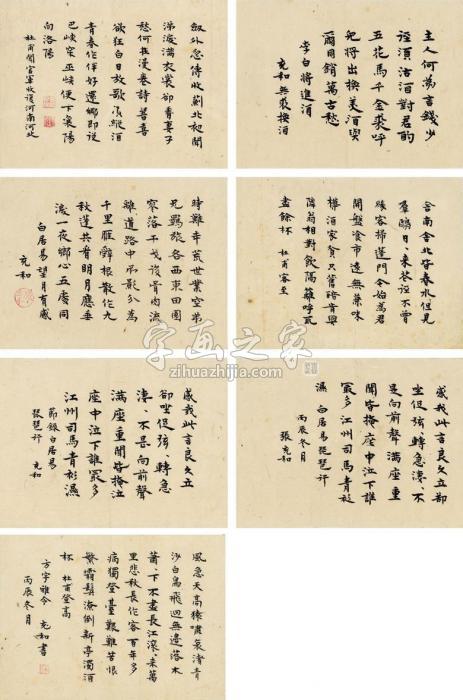 劍外忽傳收薊北初聞
涕淚滿衣裳卻看妻子
愁何在漫卷詩書喜
欲狂白日放歌須縱酒
青春作伴好還鄉即從
巴峽穿巫峽便下襄陽
向洛陽
杜甫聞官軍收復河南河北
主人何為言錢少
逕須沽酒對君酌
五花馬千金裘呼
兒將出換美酒與
爾同銷萬古愁
李白將進酒
充和無裘換酒
時難年荒世業空弟
兄羈旅各西東田園
寥落干戈後骨肉流
離道路中弔影分為
千里雁辭根散作九
秋蓬共看明月應垂
淚一夜鄉心五處同
白居易望月有感
充和
舍南舍北皆春水但見
群鷗日々來花徑不曾
緣客掃蓬門今始為君
開盤飧市遠無兼味
樽酒家貧只舊醅肯與
鄰翁相對飲隔籬呼取
盡餘杯 杜甫客至
感我此言良久立
卻坐促弦々轉急
淒々不是向前聲
滿座重聞皆掩泣
座中泣下誰最多
江州司馬青衫濕
節錄白居易
琵琶行 充和
感我此言良久立卻
坐促弦々轉急淒々不
是向前聲滿座重
聞皆掩座中泣下誰
最多江州司馬青衫
濕 白居易琵琶行
丙辰冬月
張充和
風急天高猿嘯哀渚清
沙白鳥飛迴無邊落木
蕭々下不盡長江滾々來萬
里悲秋長作客百年多
病獨登臺艱難苦恨
繁霜鬢潦倒新亭濁酒
杯 杜甫登高
方宇雅令 充和書
丙辰冬月
字画之家
zihuazhijia.com